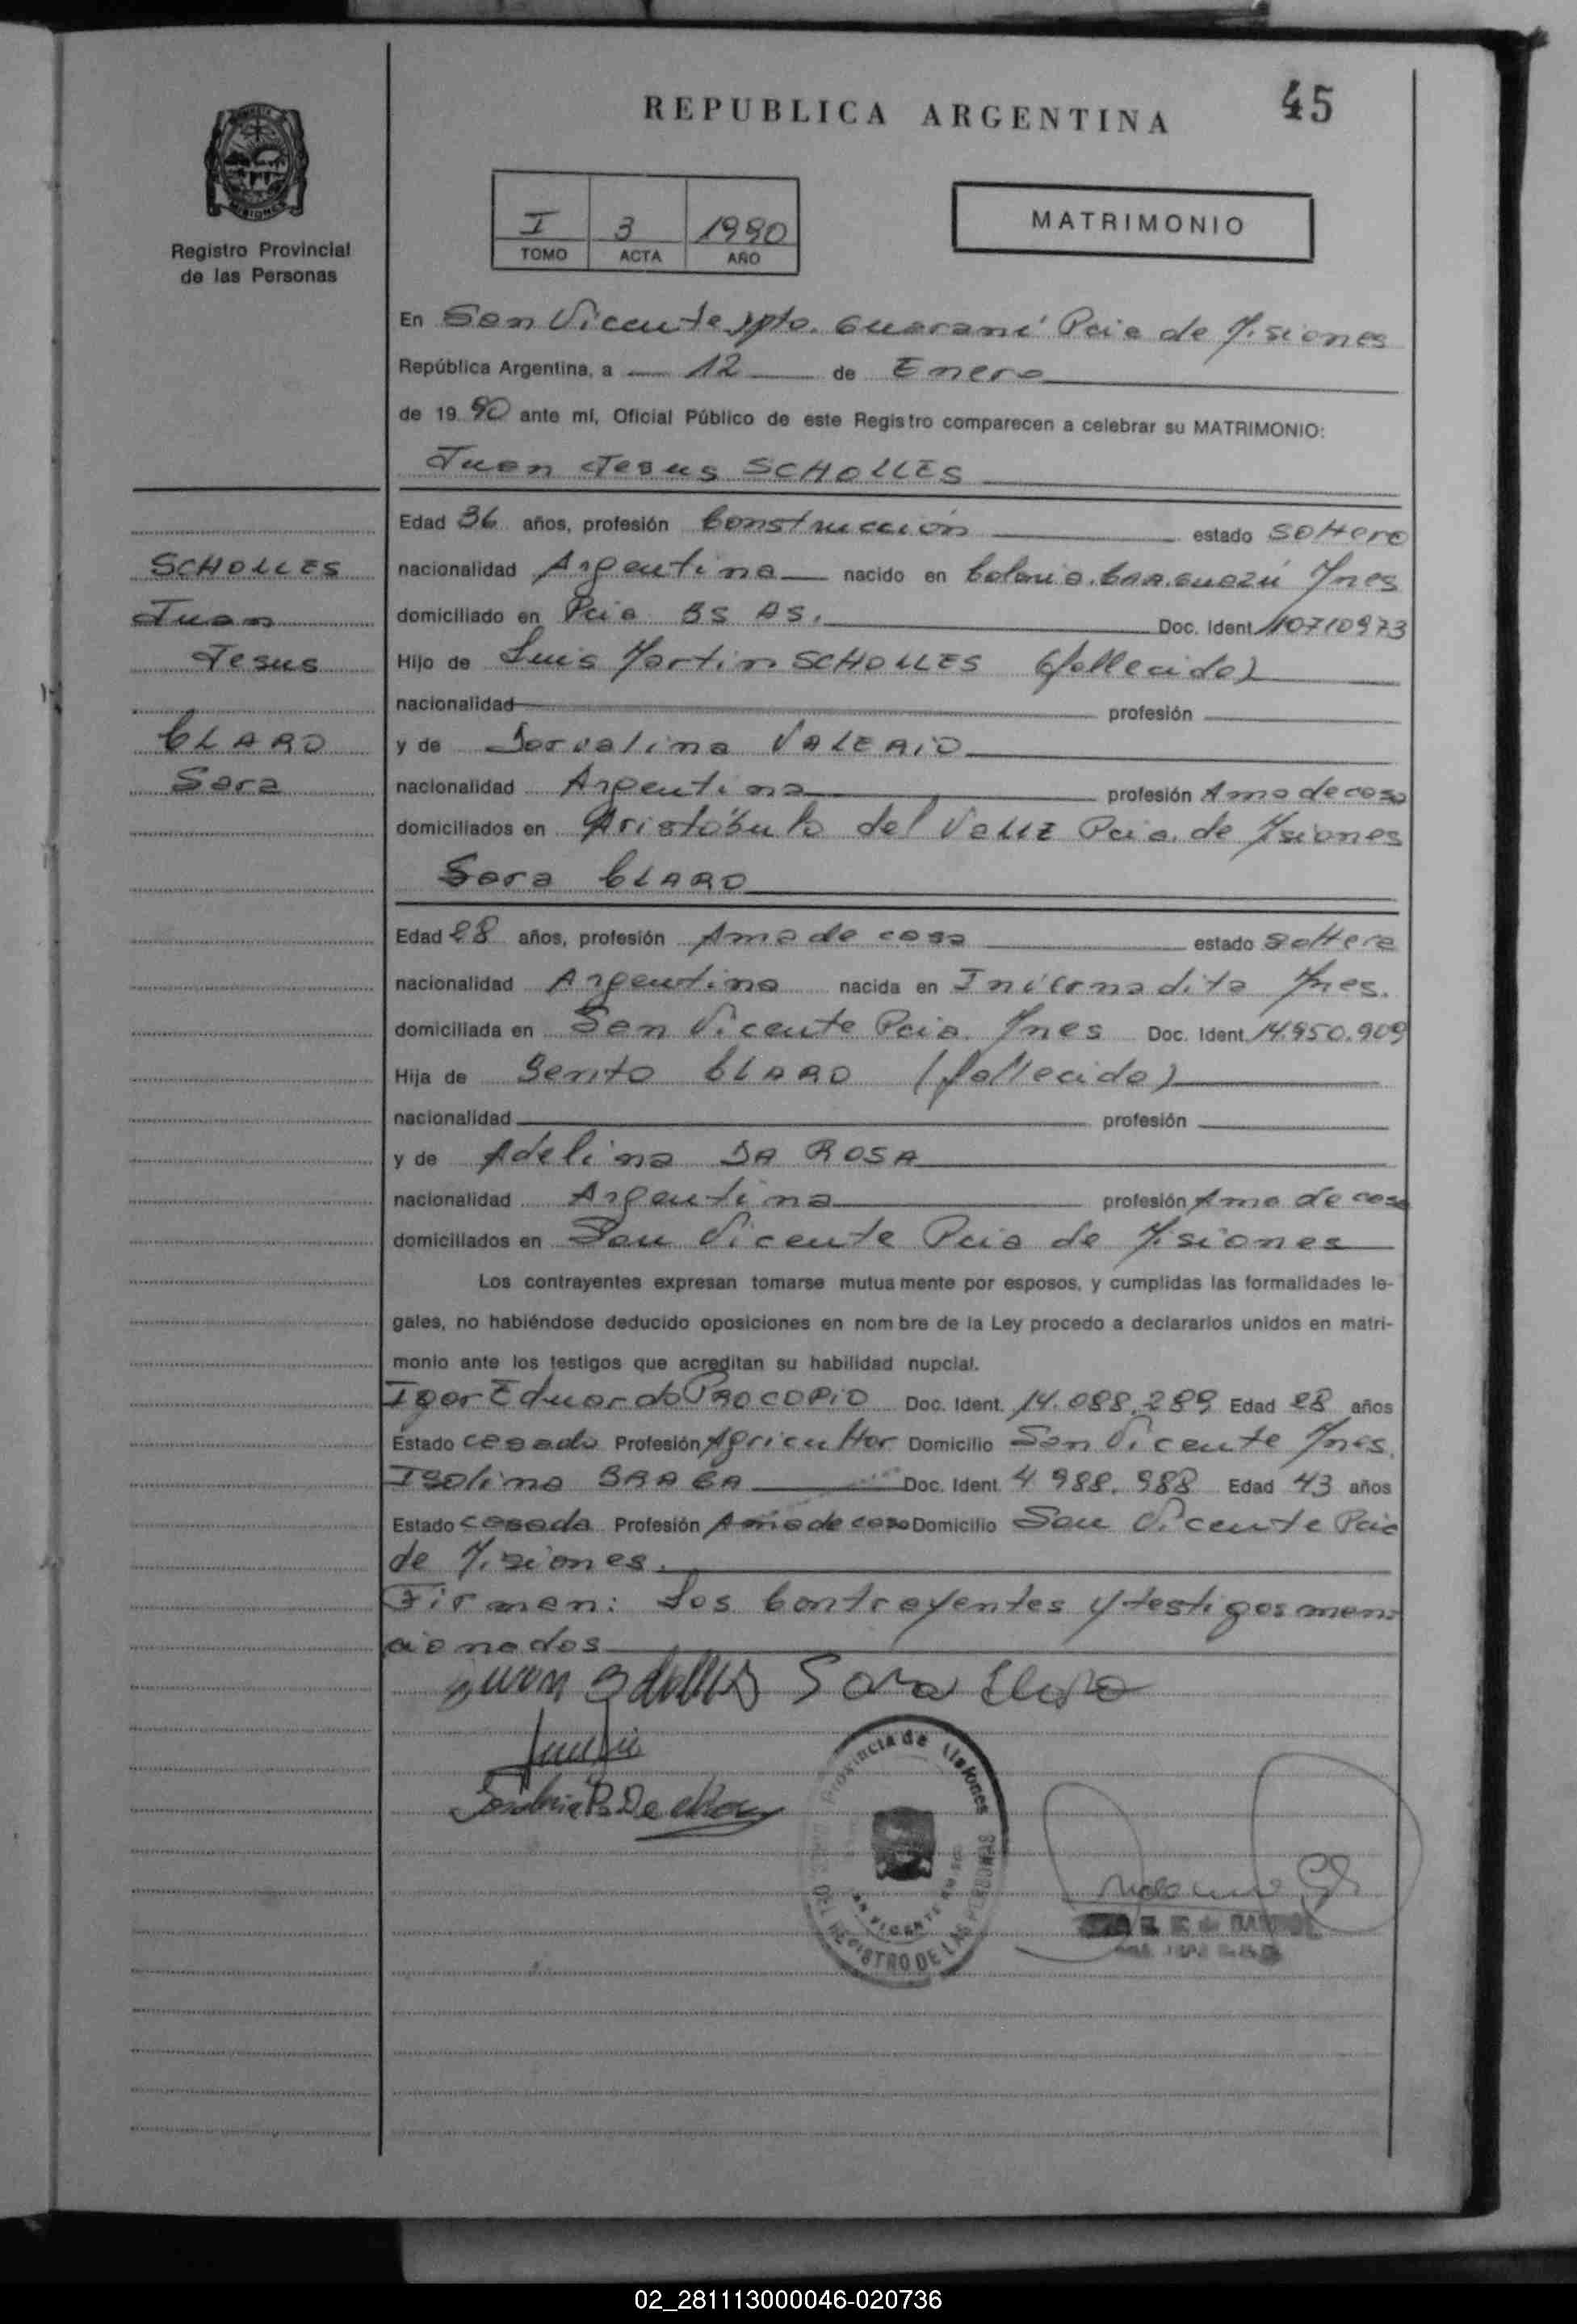 45
REPUBLICA ARGENTINA
MISIONES
Registro Provincial
de las Personas
I 3 1990
TOMO ACTA AÑO
MATRIMONIO
En San Vicente Dpto. Guaraní Pcia de Misiones
República Argentina, a 12 de Enero
de 1990 ante mí, Oficial Público de este Registro comparecen a celebrar su MATRIMONIO:
Juan Jesus SCHOLLES
Edad 36 años, profesión Construcción estado soltero
SCHOLLES
nacionalidad Argentina nacido en Colonia Caa.Guazú Mnes
Juan
domiciliado en Pcia BS AS. Doc. Ident. 10710973
Jesus
Hijo de Luis Martin SCHOLLES (fallecido)
nacionalidad profesión
CLARO
y de Dorvalina VALERIO
Sara
nacionalidad Argentina profesión Ama de casa
domiciliados en Aristóbulo del Valle Pcia. de Misiones
Sara CLARO
Edad 28 años, profesión Ama de casa estado soltera
nacionalidad Argentina nacida en Mnes.
domiciliada en San Vicente Pcia. Mnes Doc. Ident. 14.950.909
Hija de Bento CLARO (fallecido)
nacionalidad profesión
y de Adelina DA ROSA
nacionalidad Argentina profesión Ama de casa
domiciliados en San Vicente Pcia de Misiones
Los contrayentes expresan tomarse mutuamente por esposos, y cumplidas las formalidades le-
gales, no habiéndose deducido oposiciones en nombre de la Ley procedo a declararlos unidos en matri-
monio ante los testigos que acreditan su habilidad nupcial.
Igor Eduardo PROCOPIO Doc. Ident. 14.088.289 Edad 28 años
Estado casado Profesión Agricultor Domicilio San Vicente Mnes.
Isolina BRAGA Doc. Ident. 4 988.988 Edad 43 años
Estado casada Profesión Ama de casa Domicilio San Vicente Pcia
de Misiones.
Firman: Los Contrayentes y testigos men-
cionados
Juan Scholles Sara Claro
Provincia de Misiones
SAN VICENTE
DEL REGISTRO DE LAS PERSONAS
02_281113000046-020736